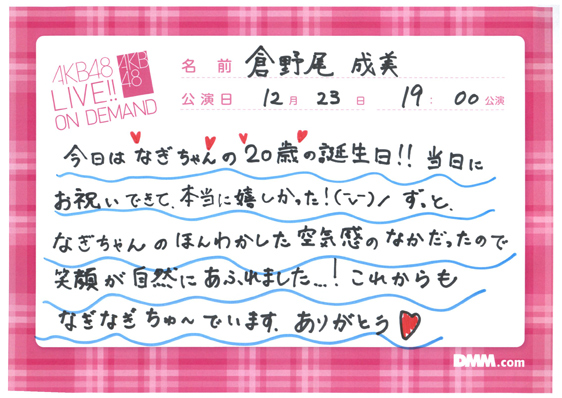 AKB48
LIVE!!
ON DEMAND
AKB
48
名前 倉野尾 成美
公演日 12月 23日 19:00公演
今日は なぎちゃんの 20歳の誕生日!! 当日に
お祝いできて、本当に嬉しかった!(˘ᵕ˘)ノ ずっと、
なぎちゃんの ほんわかした 空気感の なかだったので
笑顔が 自然に あふれました...! これからも
なぎなぎ ちゅ〜でいます。ありがとう
DMM.com